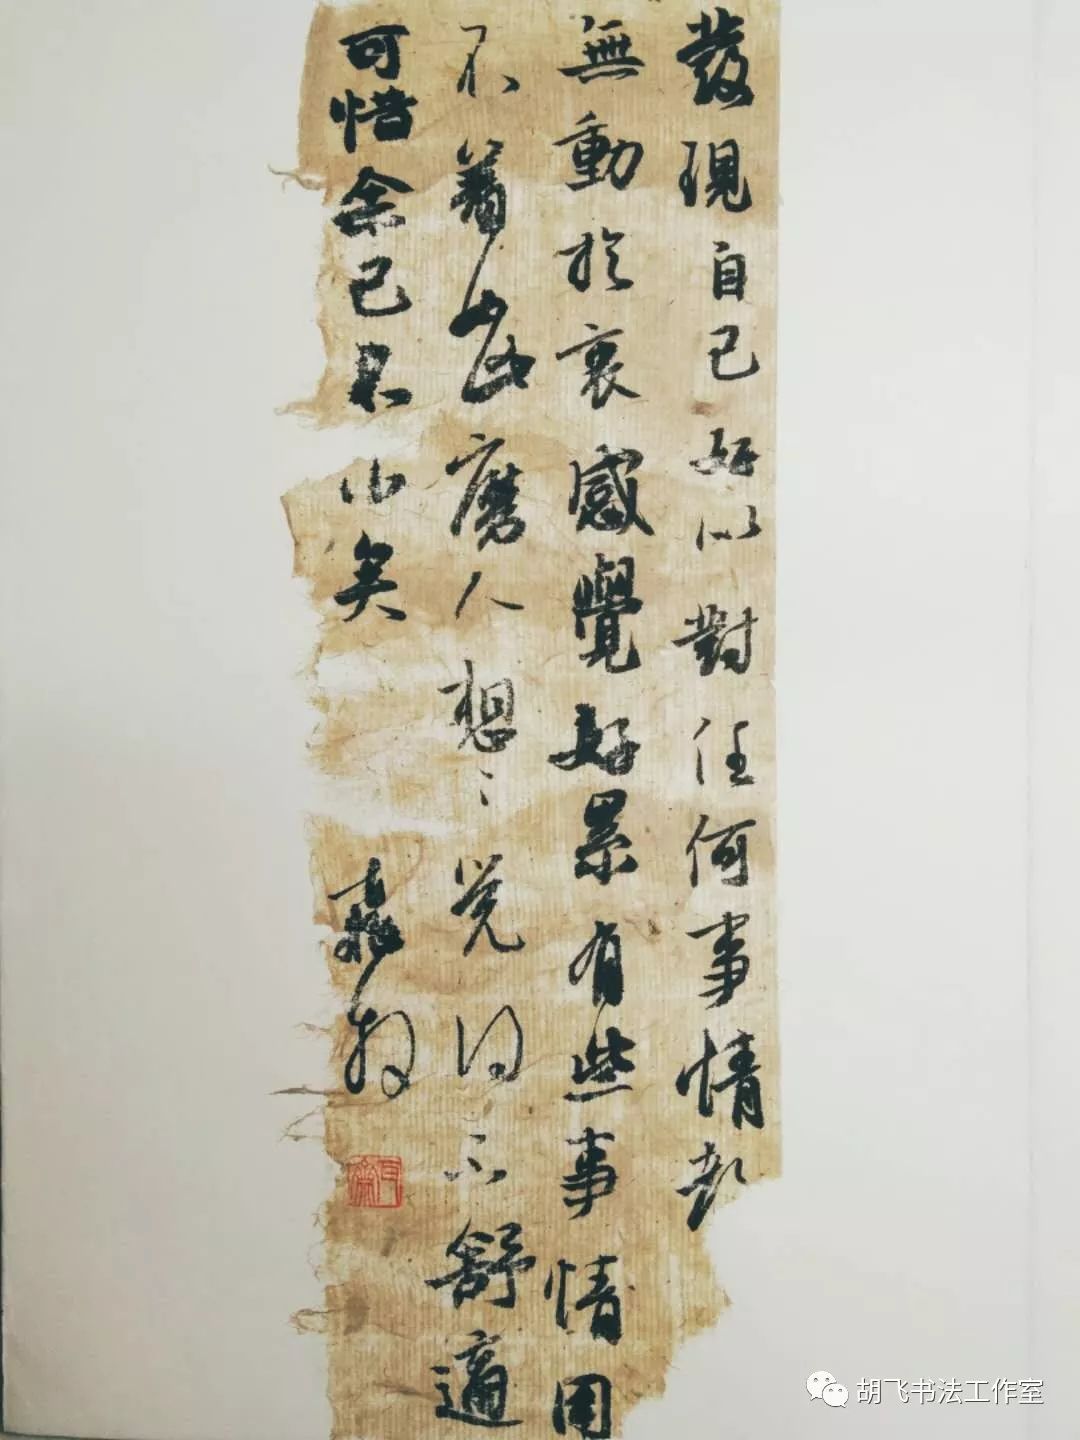 發現自己好以對任何事情都
無動於衷感覺好累有些事情用
不着出磨人想〻覺得不舒適
可惜余已不小矣
胡飞书法工作室